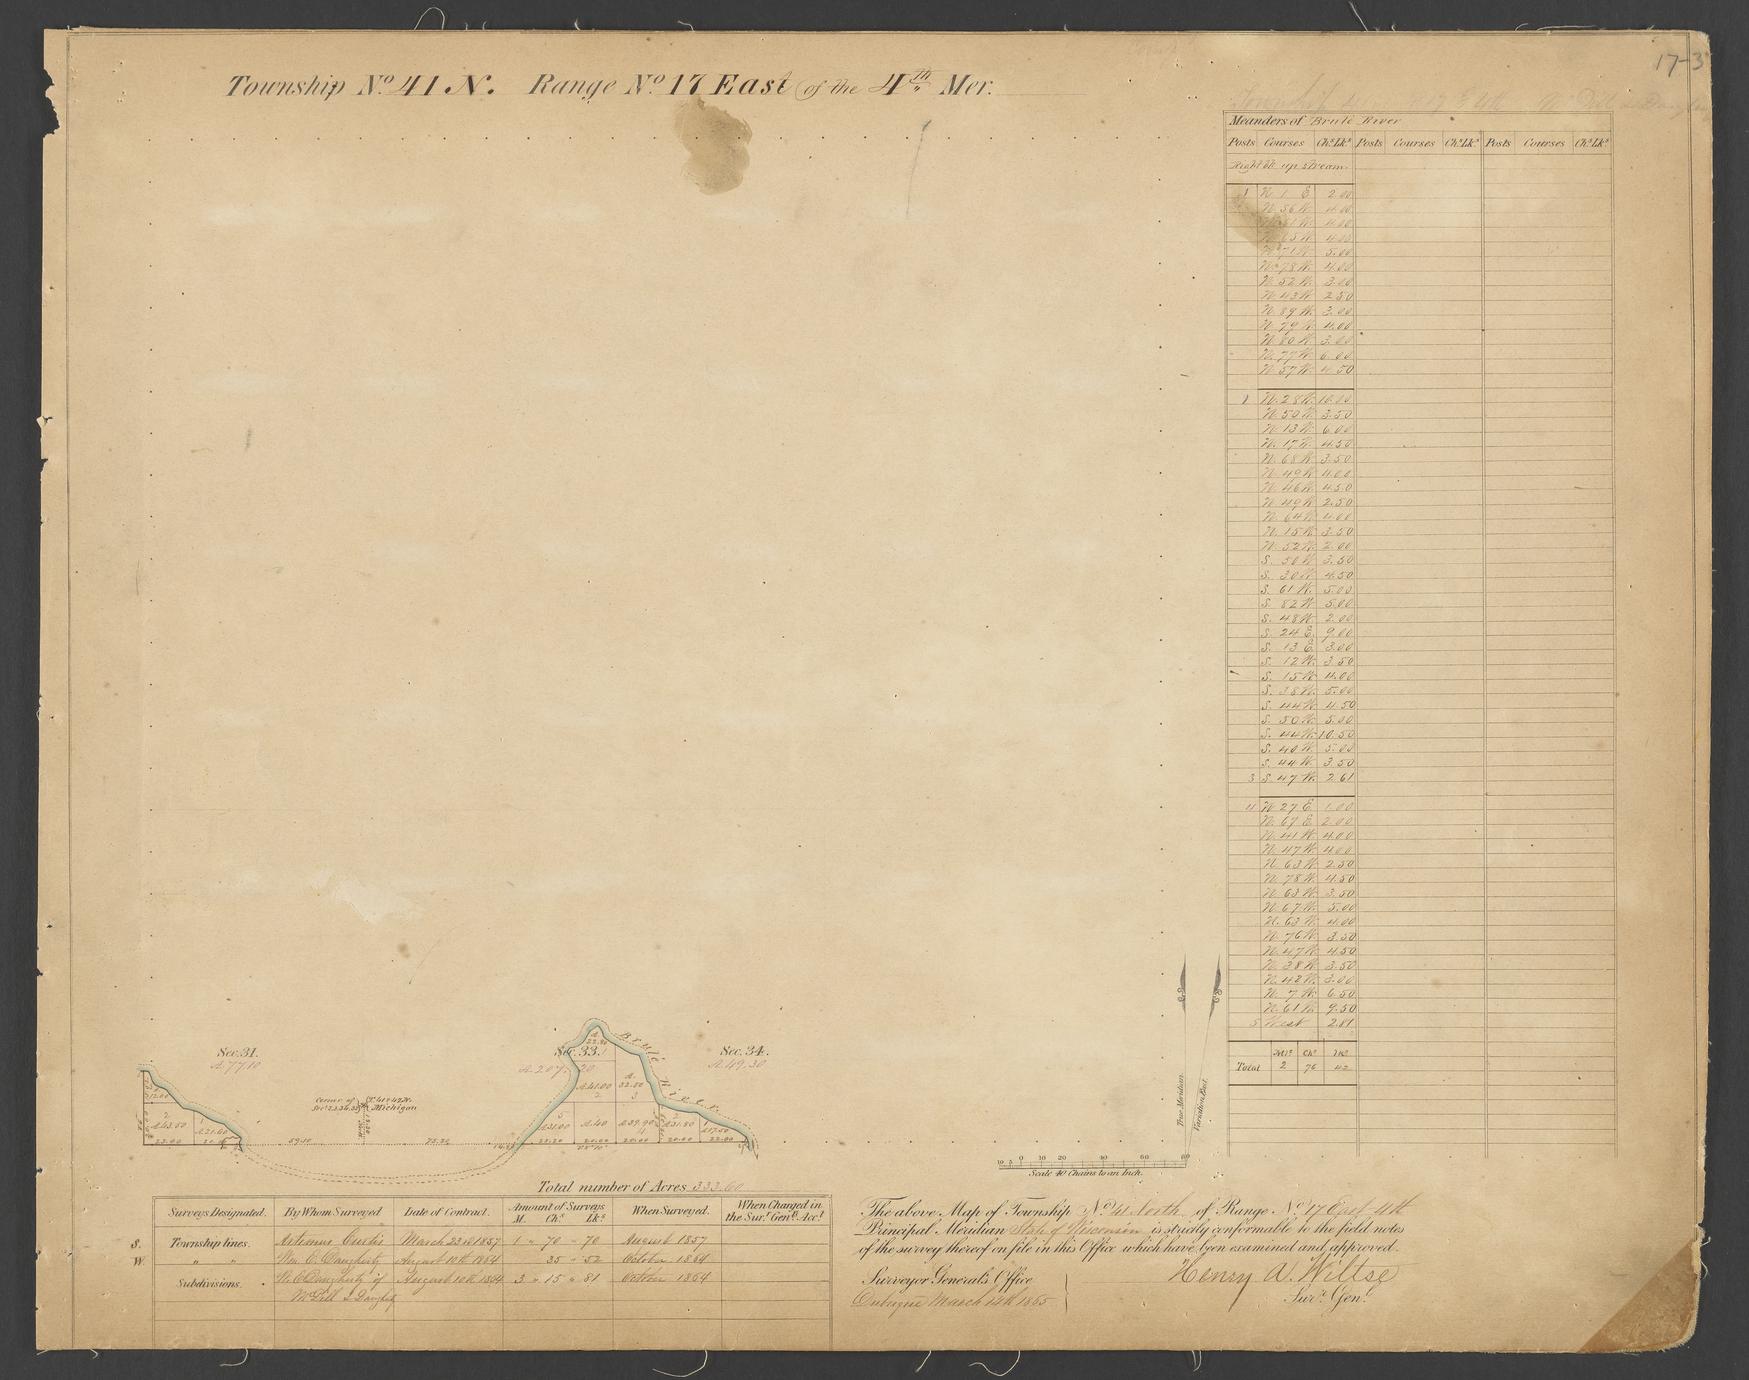 17-3
Township Nº 41 N. Range Nº 17 East (of the 4th Mer.
Meanders of Brulé River
Posts Courses Chs Lks Posts Courses Chs Lks Posts Courses Chs Lks
Right bk up stream
1 N. 1 E 2.00
N. 56 W. 4.00
4.00
4.00
N. 71 W. 5.00
N. 78 W. 4.00
N. 52 W. 3.00
N. 43 W. 2.50
N. 89 W. 3.00
N. 79 W. 4.00
N. 80 W. 3.00
N. 77 W. 6.00
N. 57 W. 4.50
2 N. 28 W. 10.00
N. 50 W. 3.50
N. 13 W. 6.00
N. 17 W. 4.50
N. 68 W. 3.50
N. 49 W. 4.00
N. 46 W. 4.50
N. 49 W. 2.50
N. 64 W. 4.00
N. 15 W. 3.50
N. 52 W. 2.00
S. 50 W. 3.50
S. 30 W. 4.50
S. 61 W. 5.00
S. 82 W. 5.00
S. 48 W. 2.00
S. 24 E. 9.00
S. 13 E. 3.00
S. 12 W. 3.50
S. 15 W. 4.00
S. 38 W. 5.00
S. 44 W. 4.50
S. 50 W. 5.00
S. 44 W. 10.50
S. 40 W. 5.00
S. 44 W. 3.50
3 S. 47 W. 2.61
4 N. 27 E. 1.00
N. 67 E. 2.00
N. 41 W. 4.00
N. 47 W. 4.00
N. 63 W. 2.50
N. 78 W. 4.50
N. 63 W. 3.50
N. 67 W. 5.00
N. 63 W. 4.00
N. 76 W. 3.50
N. 47 W. 4.50
N. 38 W. 3.50
N. 42 W. 3.00
N. 7 W. 6.50
N. 61 W. 9.50
5 West 2.81
Mls Chs Lks
Total 2 76 42
Sec. 31.
A. 77.10
Sec. 33.
A. 207. 20
Sec. 34.
A. 49.30
Brulé River
A. 41.00
2
A. 32.80
3
2
A. 43.50
1
A. 21.60
5
A. 31.00
A. 40
A. 39.90
4
2
A. 31.80
1
A. 17.50
Corner of T. 41 & 42 N.
Michigan
59.10
75.20
23.00
20.00 20.00 20.00 22.00
True Meridian.
Variation East.
10 5 0 10 20 40 60 80
Scale 40 Chains to an Inch.
Total number of Acres 333.60
Surveys Designated. By Whom Surveyed Date of Contract. Amount of Surveys When Surveyed. When Charged in
M. Chs Lks the Sur. Genls Acct
S. Township lines. Artemus Curtis March 23d 1857 1 " 70 " 70 August 1857
W. " " Wm. C. Daugherty August 10th 1864 35 " 52 October 1864
Subdivisions. W. C. Daugherty of August 10th 1864 3 " 15 " 81 October 1864
McDill & Daugherty
The above Map of Township Nº 41 North of Range Nº 17 East 4th
Principal Meridian State of Wisconsin is strictly conformable to the field notes
of the survey thereof on file in this Office which have been examined and approved.
Surveyor General's Office
Dubuque March 14th 1865
Henry A. Wiltse
Surr. Genl